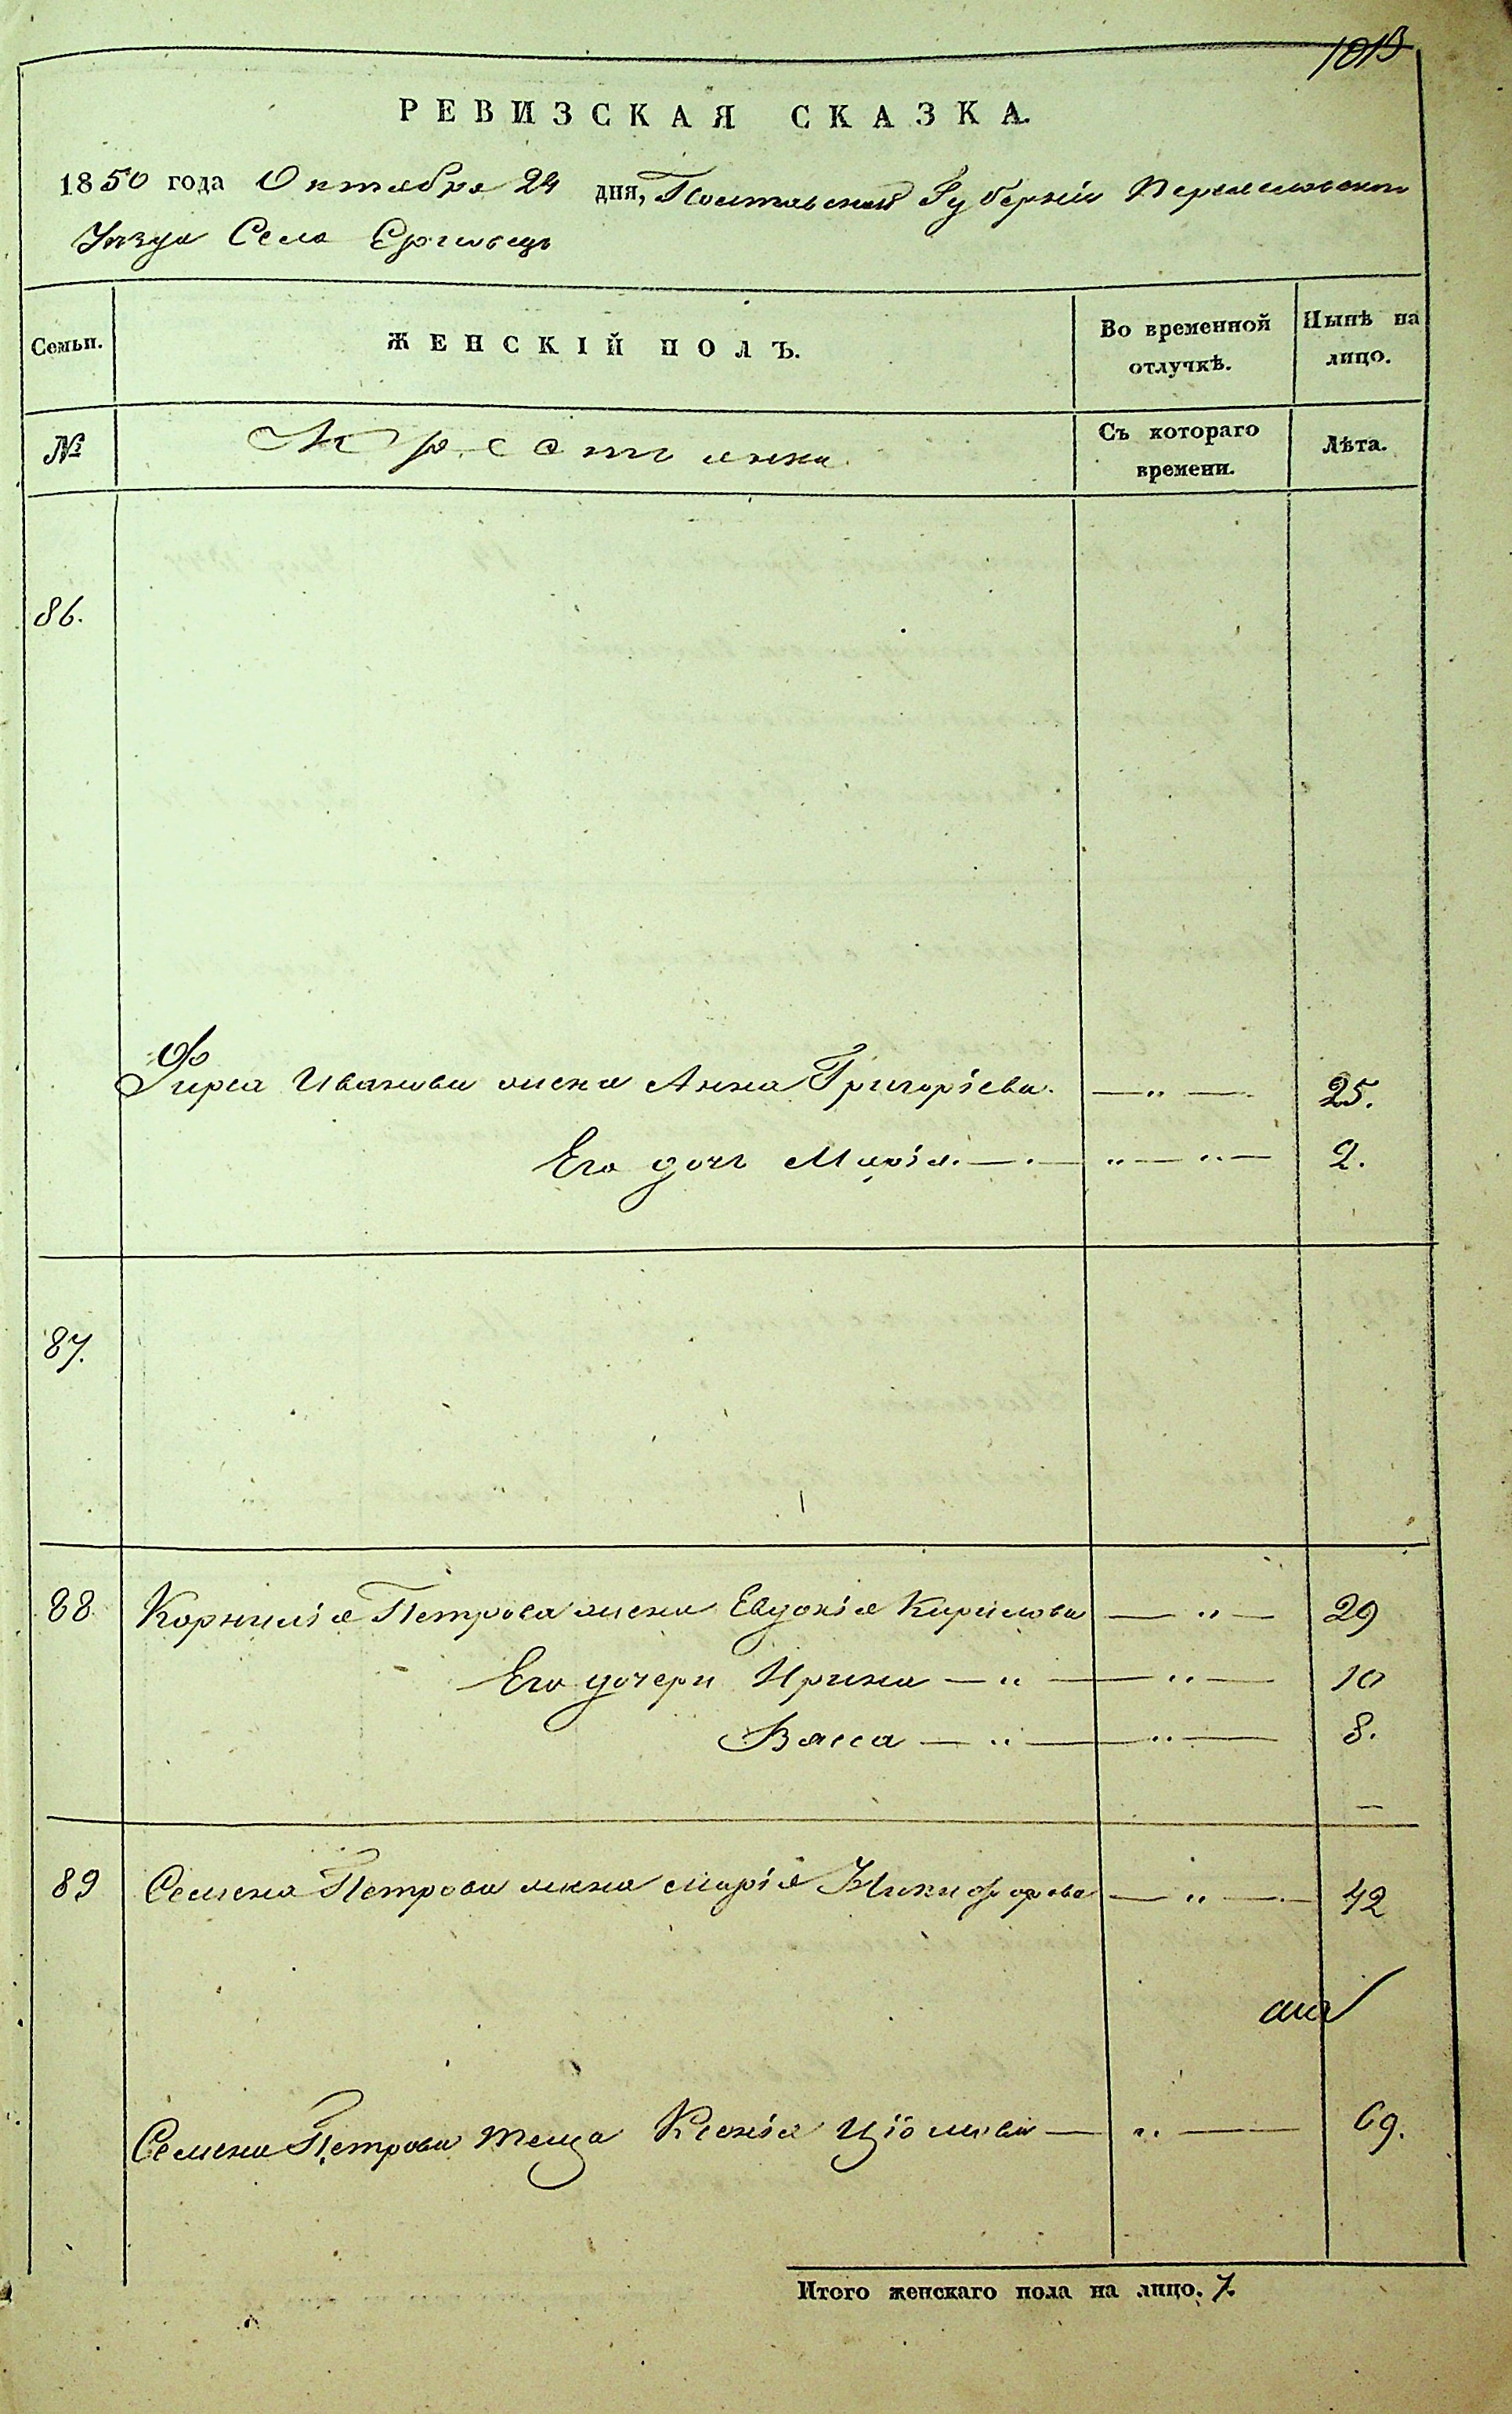 1013
РЕВИЗСКАЯ СКАЗКА.
1850 года Октября 24 дня, Полтавской Губерніи Переяславского
Уѣзда Села Ерковецъ
Семьи.
ЖЕНСКІЙ ПОЛЪ.
Во временной отлучкѣ.
Нынѣ на лицо.
№
Крестьянки
Съ котораго времени.
Лѣта.
86.
Фирса Иванова жена Анна Григорієва. — „ — 25.
Его дочь Марія. — „ — „ — 2.
87.
88 Корнилія Петрова жена Евдокія Кирилова — „ — 29
Его дочери Ирина — „ — „ — 10
Васса — „ — „ — 8.
89 Семена Петрова жена Марія Никифорова — „ — 42
Семена Петрова теща Ксенія — „ — 69.
Итого женскаго пола на лицо. 7.